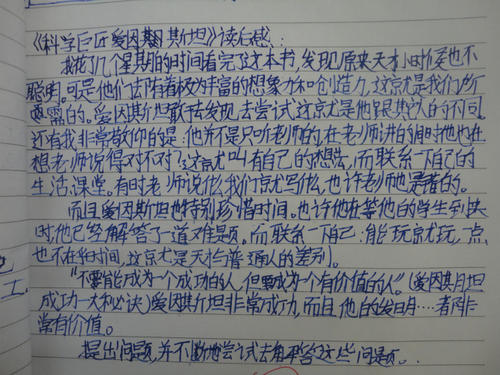 《科学巨匠爱因斯坦》读后感:
我花了几个星期的时间看完了这本书,发现原来天才小时候也不
聪明。可是他们却有着极为丰富的想象力和创造力,这就是我们所
需要的。爱因斯坦敢于去发现去尝试,这就是他跟其它人的不同。
还有我非常敬仰的是:他并不是只听老师的,在老师讲的同时他也在
想老师说得对不对?这就叫有自己的想法,而联系一下自己的
生活,课堂。有时老师说什么,我们就写什么,也许老师也是错的。
而且爱因斯坦也特别珍惜时间。也许他在等他的学生到来
时,他已经解答了一道难题。而联系一下自己:能玩就玩,一点
也不在乎时间,这就是天才与普通人的差别。
"不要能成为一个成功的人,但要成为一个有价值的人"。(爱因斯坦
成功一大秘诀)爱因斯坦非常成功,而且他的发明……都非
常有价值。
提出问题,并不断地尝试去解答这些问题。
工.